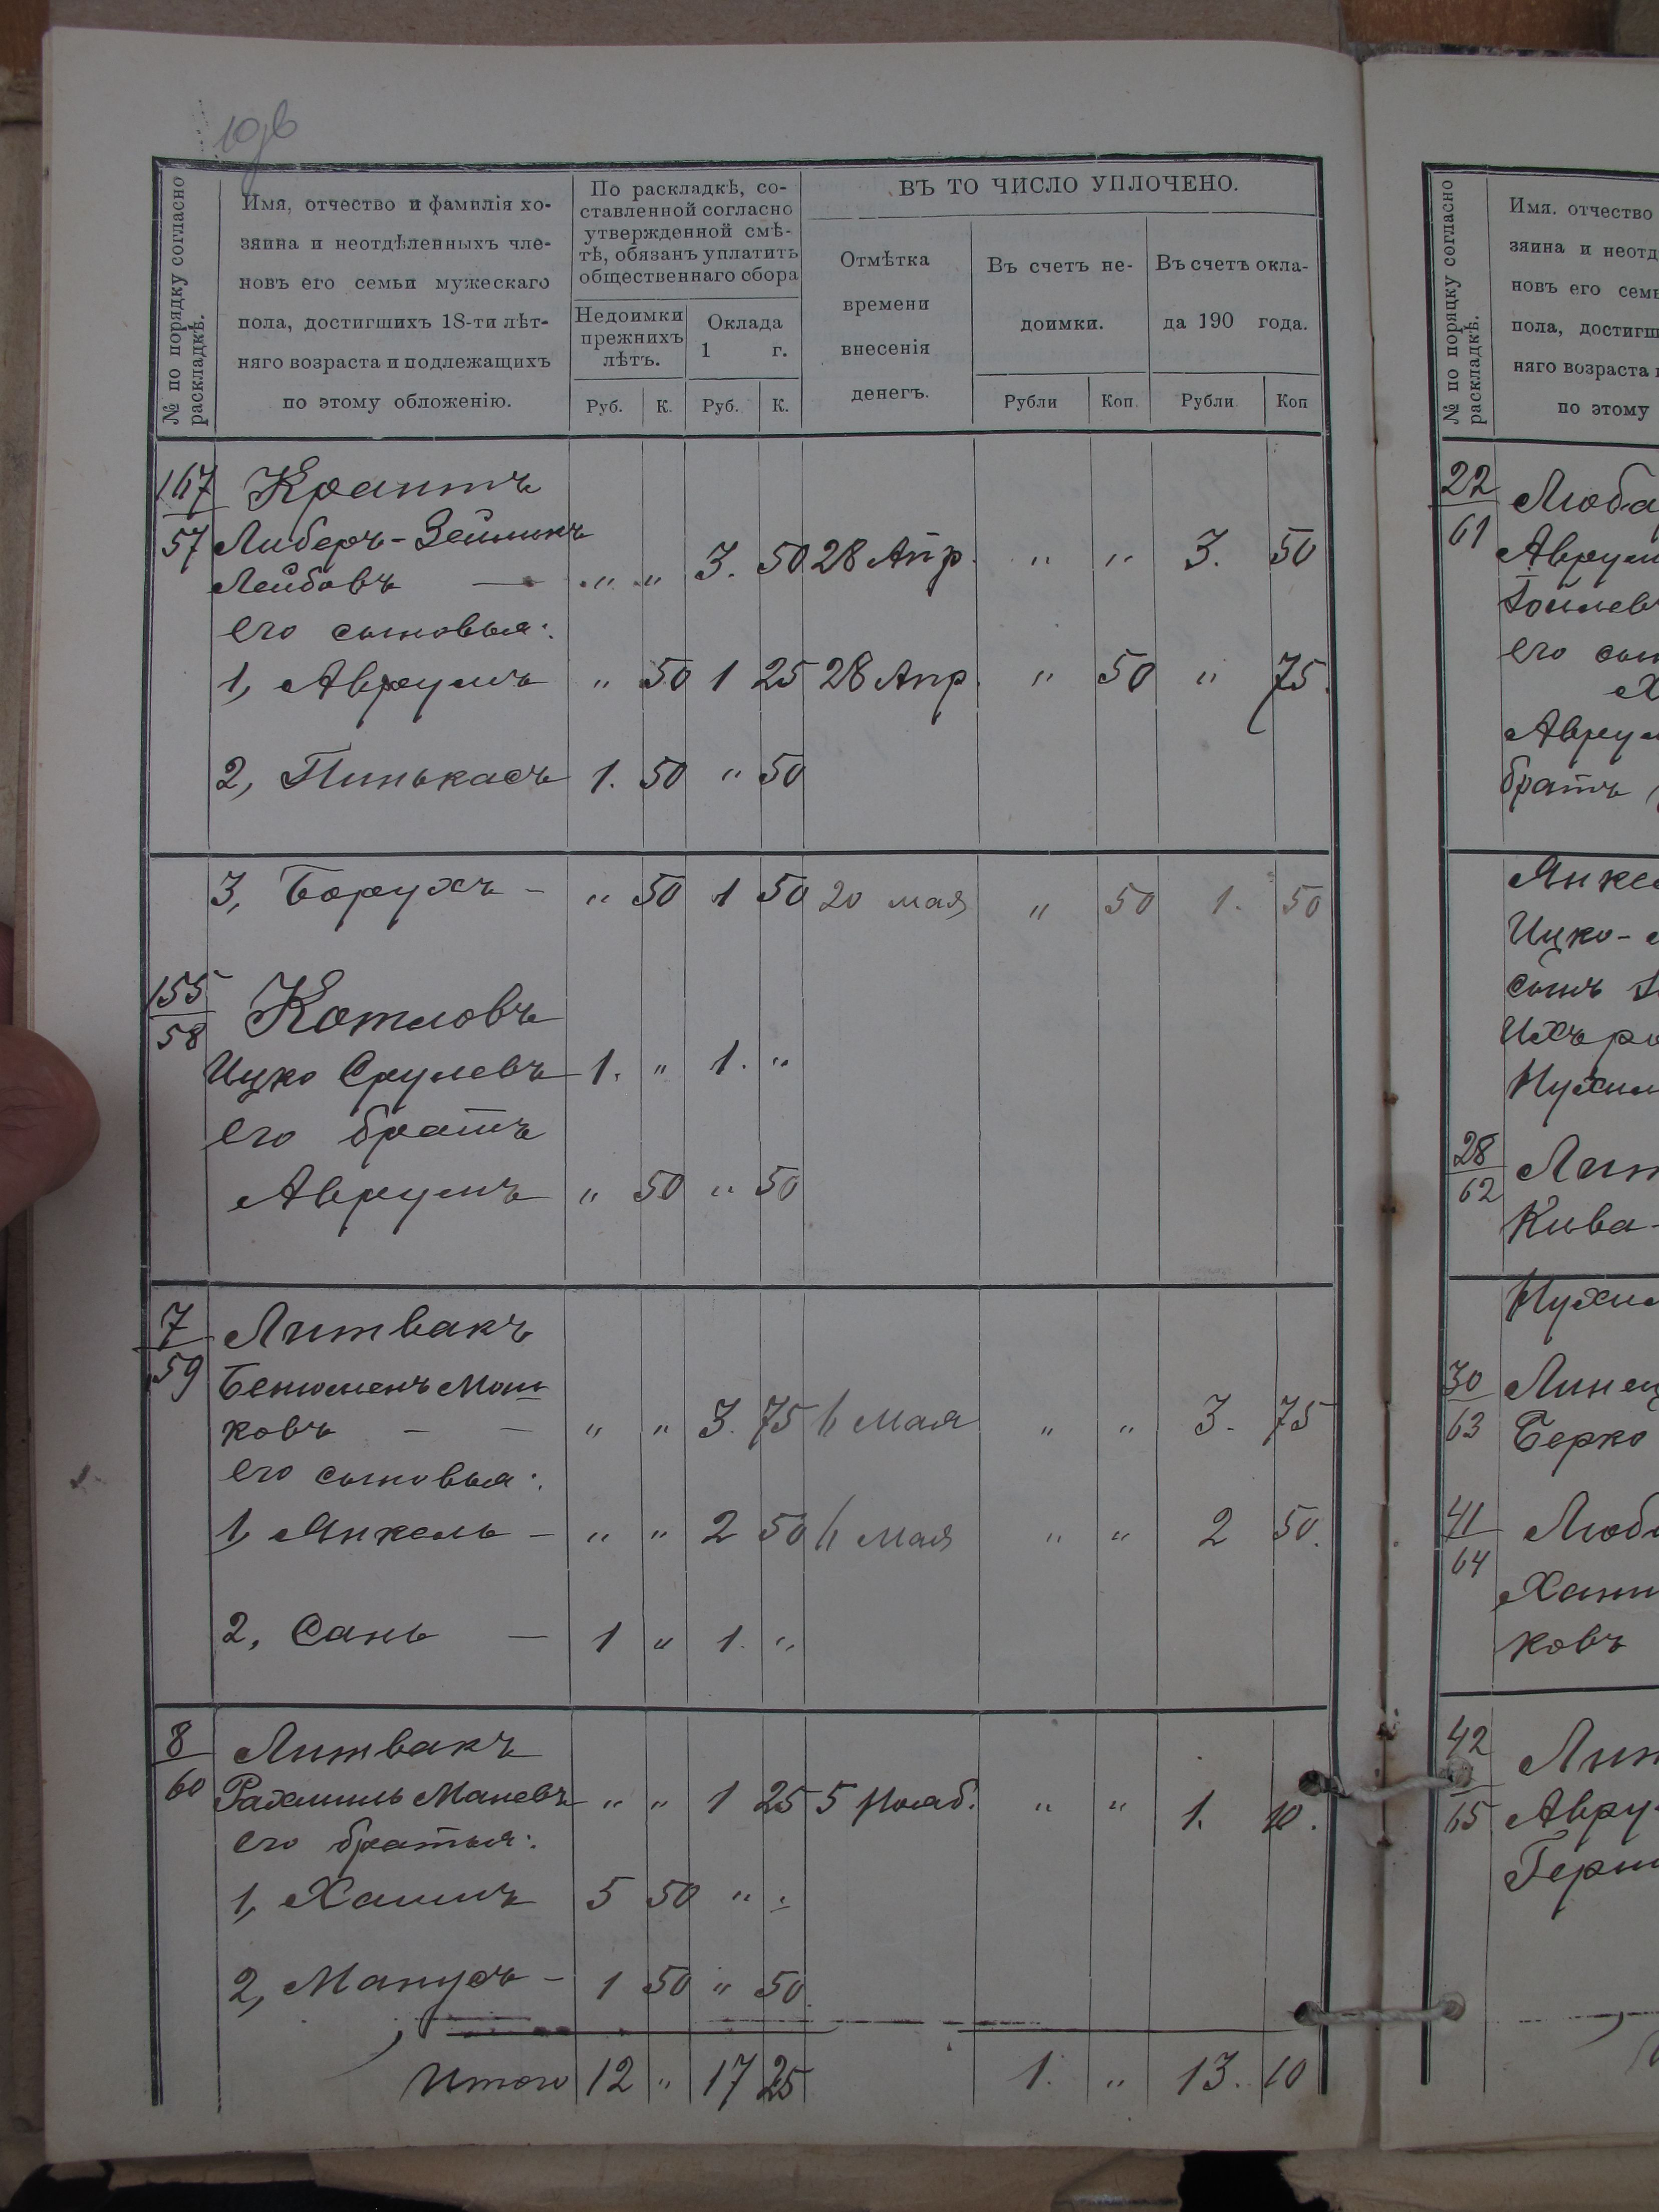 19в
№ по порядку согласно
раскладкѣ.
Имя, отчество и фамилія хо-
зяина и неотдѣленныхъ чле-
новъ его семьи мужескаго
пола, достигшихъ 18-ти лѣт-
няго возраста и подлежащихъ
по этому обложенію.
По раскладкѣ, со-
ставленной согласно
утвержденной смѣ-
тѣ, обязанъ уплатить
общественнаго сбора
Недоимки
прежнихъ
лѣтъ.
Оклада
1 г.
Руб. К. Руб. К.
ВЪ ТО ЧИСЛО УПЛОЧЕНО.
Отмѣтка
времени
внесенія
денегъ.
Въ счетъ не-
доимки.
Въ счетъ окла-
да 190 года.
Рубли Коп. Рубли Коп
167 Крантъ
57 Либеръ-Зейликъ
Лейбовъ — „ „ 3. 50 28 Апр. „ „ 3. 50
его сыновья:
1, Аврумъ „ 50 1 25 28 Апр. „ 50 „ 75.
2, Пинькасъ 1. 50 „ 50
3, Борухъ - „ 50 1 50 20 мая „ 50 1. 50
155 Котловъ
58
Ицко Срулевъ 1. „ 1. „
его братъ
Аврумъ „ 50 „ 50
7 Литвакъ
59 Бенюменъ Мош
ковъ - - „ „ 3. 75 6 Мая „ „ 3- 75
его сыновья:
1, Янкель - „ „ 2 50 6 Мая „ „ 2 50.
2, Сань — 1 „ 1. „
8 Литвакъ
60 Рахмиль Маневъ „ „ 1 25 5 Нояб. „ „ 1. 10.
его братья:
1, Хаимъ 5 50 „ „
2, Манусъ - 1 50 „ 50.
Итого 12 „ 17 25 1. „ 13. 10
№ по порядку согласно
раскладкѣ.
Имя. отчество
зяина и неотд
новъ его семь
пола, достигш
няго возраста
по этому
22
61
Авру
его сын
Авру
братъ
Янке
Ицко-
сынъ
Ихъ
Нухим
28
62
Кива-
Нухи
30
63 Берко
41
64
ковъ
42
65 Авру
Герш